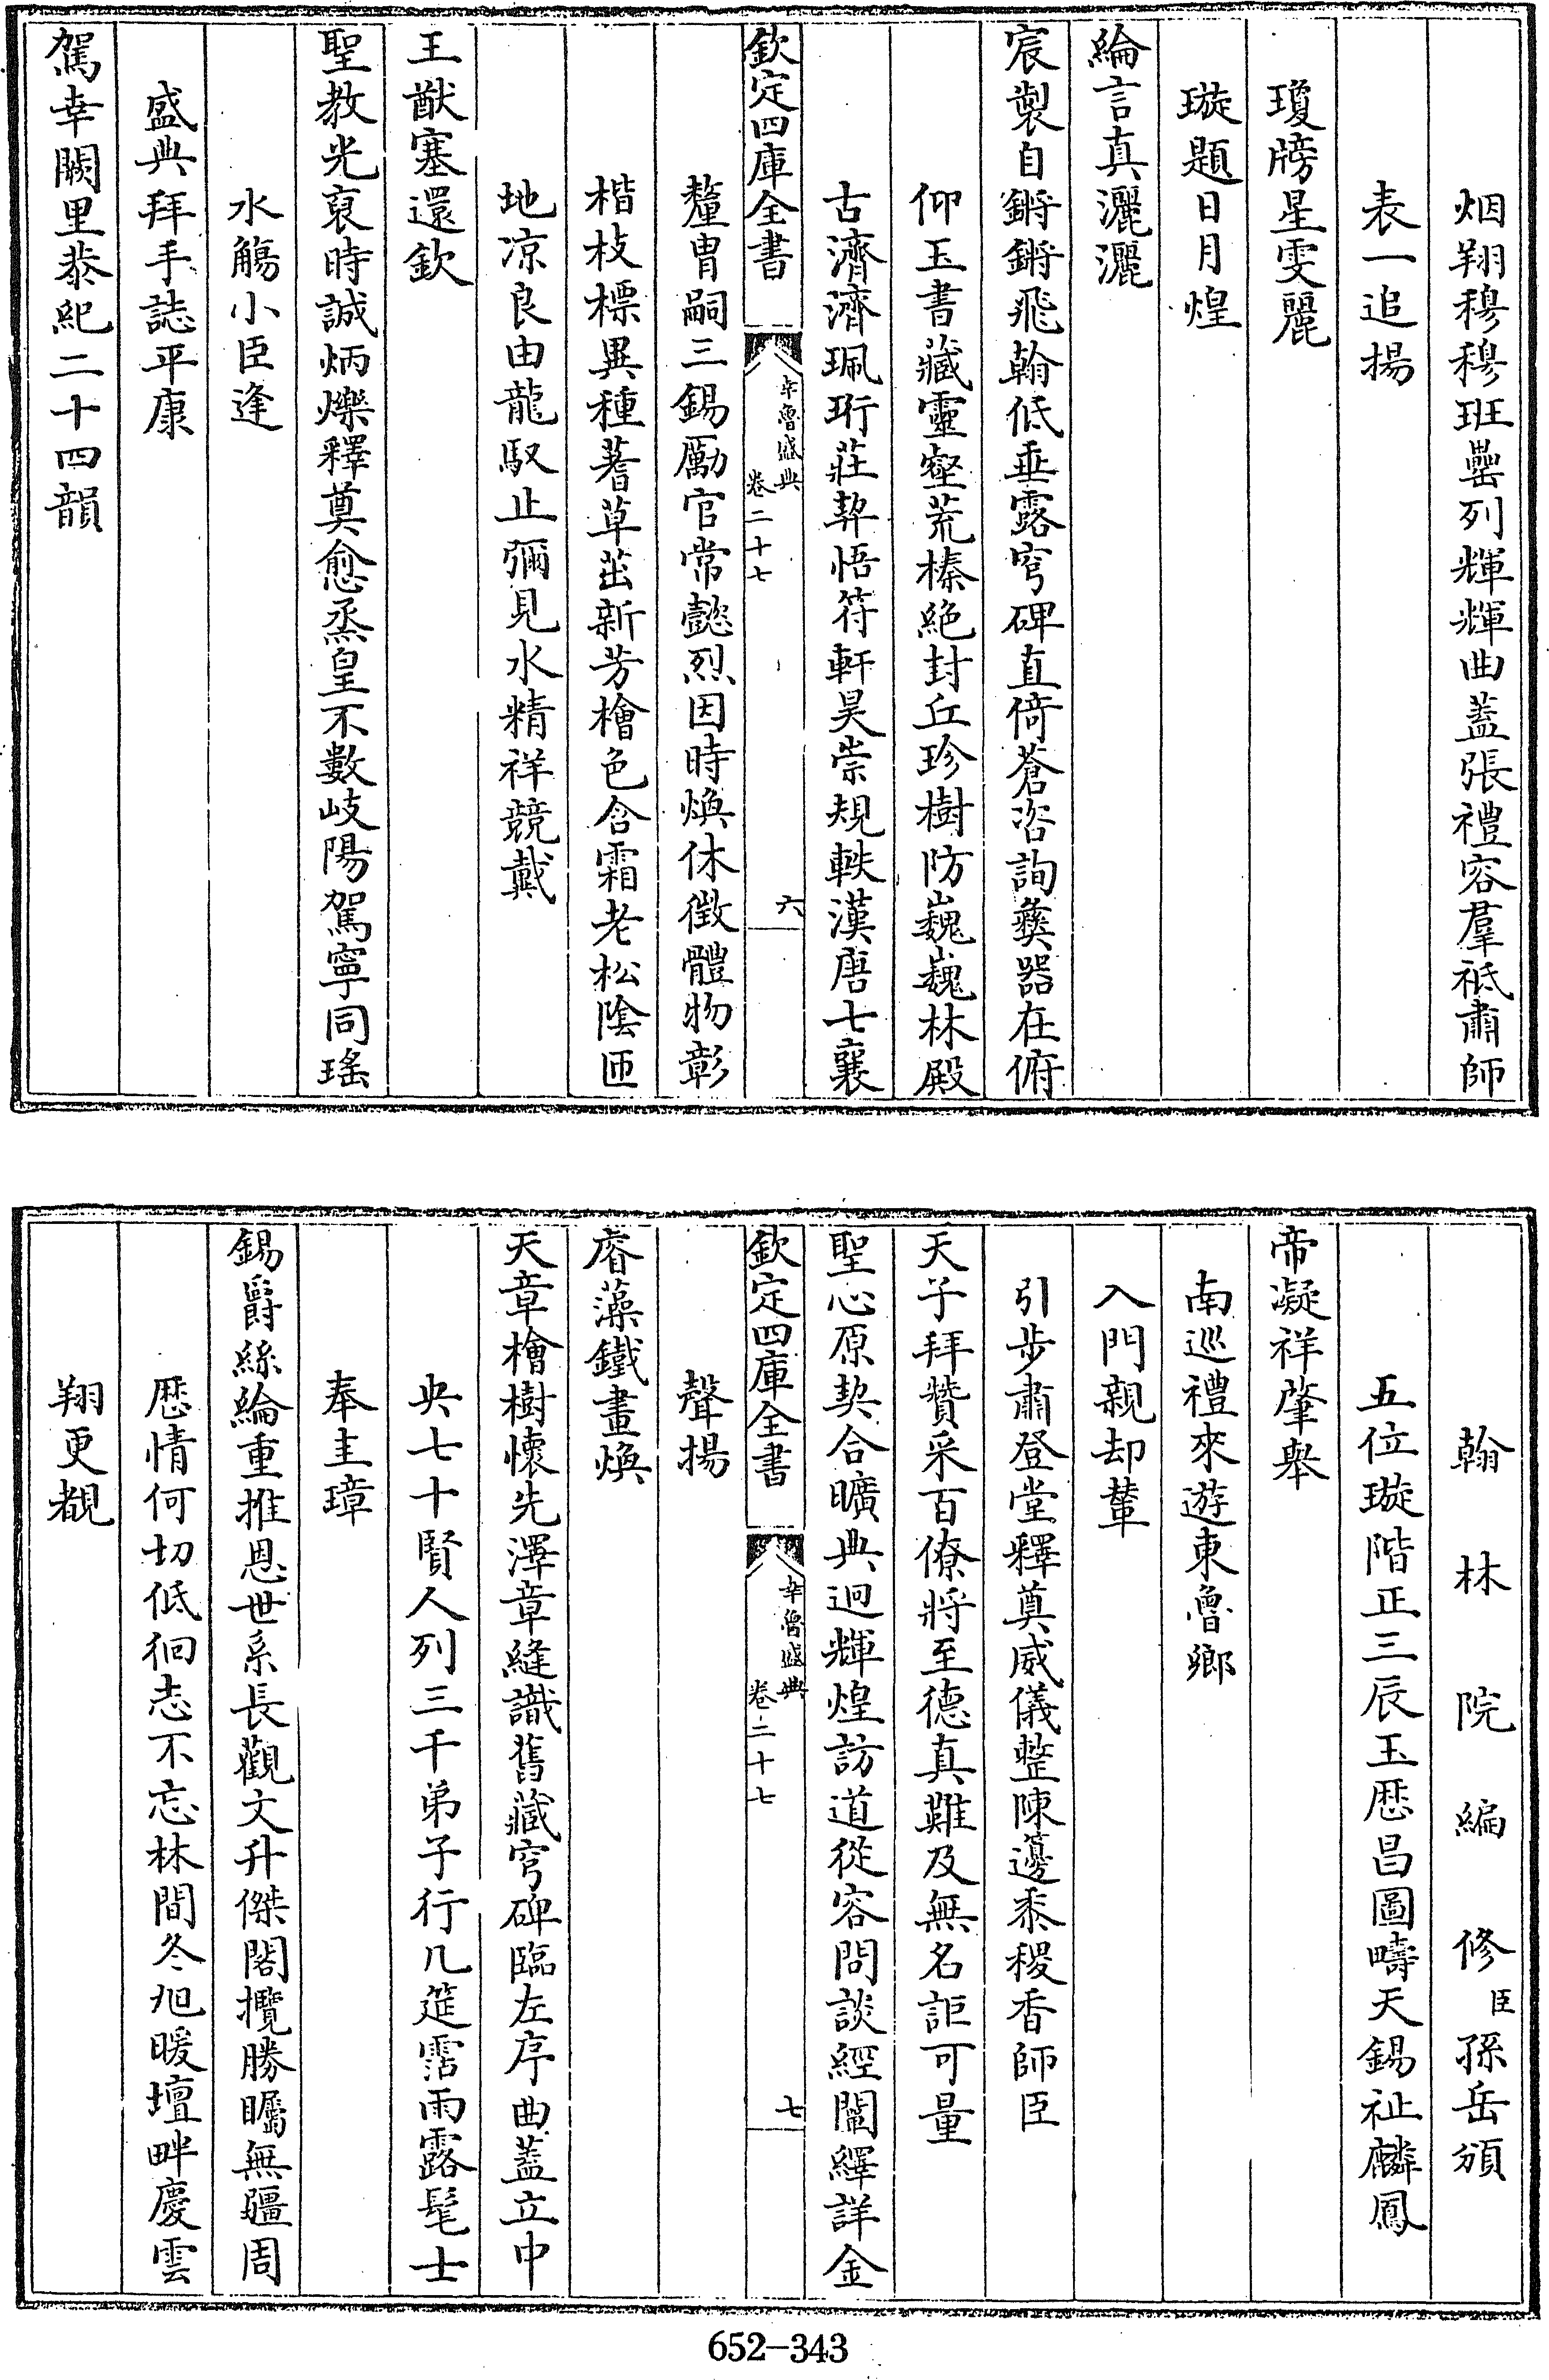 烟翔穆穆班罍列輝輝曲蓋張禮容羣祗肅師
表一追揚
瓊牓星雯麗
璇題日月煌
綸言真灑灑
宸製自鏘鏘飛翰低垂露穹碑直倚蒼咨詢彝器在俯
仰玉書藏靈壑荒榛絶封丘珍樹防巍巍林殿
古濟濟珮珩莊契悟符軒昊崇規軼漢唐七襄
欽定四庫全書
幸魯盛典
卷二十七
六
釐冑嗣三錫勵官常懿烈因時煥休徵體物彰
楷枝標異種蓍草茁新芳檜色含霜老松陰匝
地凉良由龍馭止彌見水精祥競戴
王猷塞還欽
聖教光裒時誠炳爍釋奠愈烝皇不數岐陽駕寧同瑤
水觴小臣逢
盛典拜手誌平康
駕幸闕里恭紀二十四韻
翰林院編修臣孫岳頒
五位璇階正三辰玉厯昌圖疇天錫祉麟鳳
帝凝祥肇舉
南巡禮來遊東魯鄉
入門親却輦
引步肅登堂釋奠威儀整陳籩黍稷香師臣
天子拜贊采百僚將至德真難及無名詎可量
聖心原契合曠典迥輝煌訪道從容問談經闡繹詳金
欽定四庫全書
幸魯盛典
卷二十七
七
聲揚
睿藻鐵畫煥
天章檜樹懷先澤章縫識舊藏穹碑臨左序曲蓋立中
央七十賢人列三千弟子行几筵霑雨露髦士
奉圭璋
錫爵絲綸重推恩世系長觀文升傑閣攬勝矚無疆周
厯情何切低徊志不忘林間冬旭暖壇畔慶雲
翔更覩
652-343